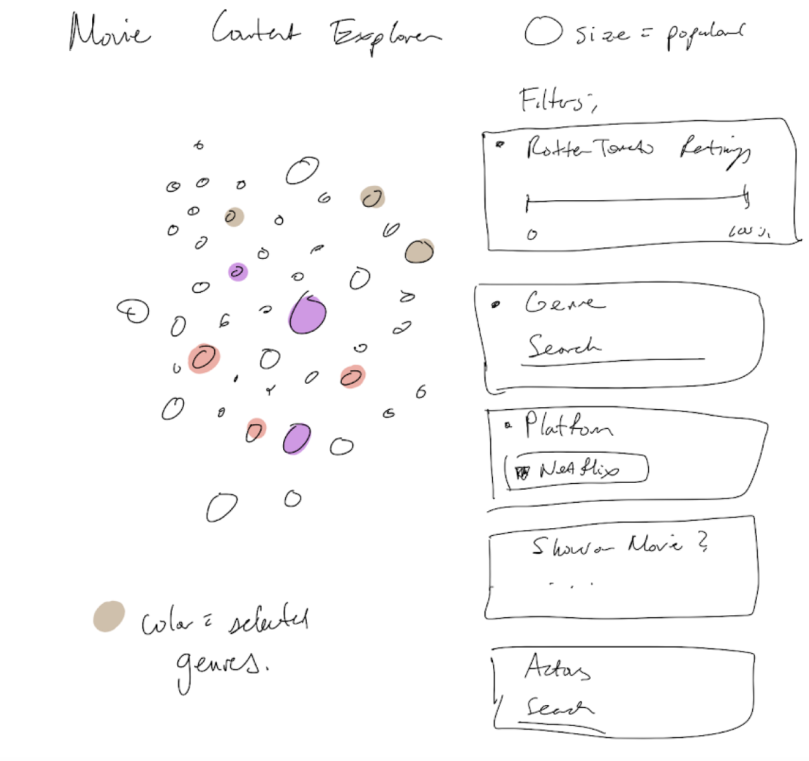 Movie Content Explorer
size = popular
Filters:
Rotten Tomato Ratings
0 100%
Genre
Search
Platform
Netflix
Show or Movie?
...
Actors
Search
color = selected
genres.